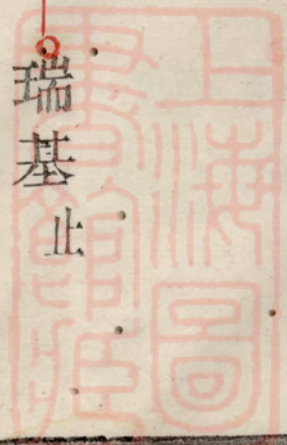 瑞基
止
上海圖
書館藏